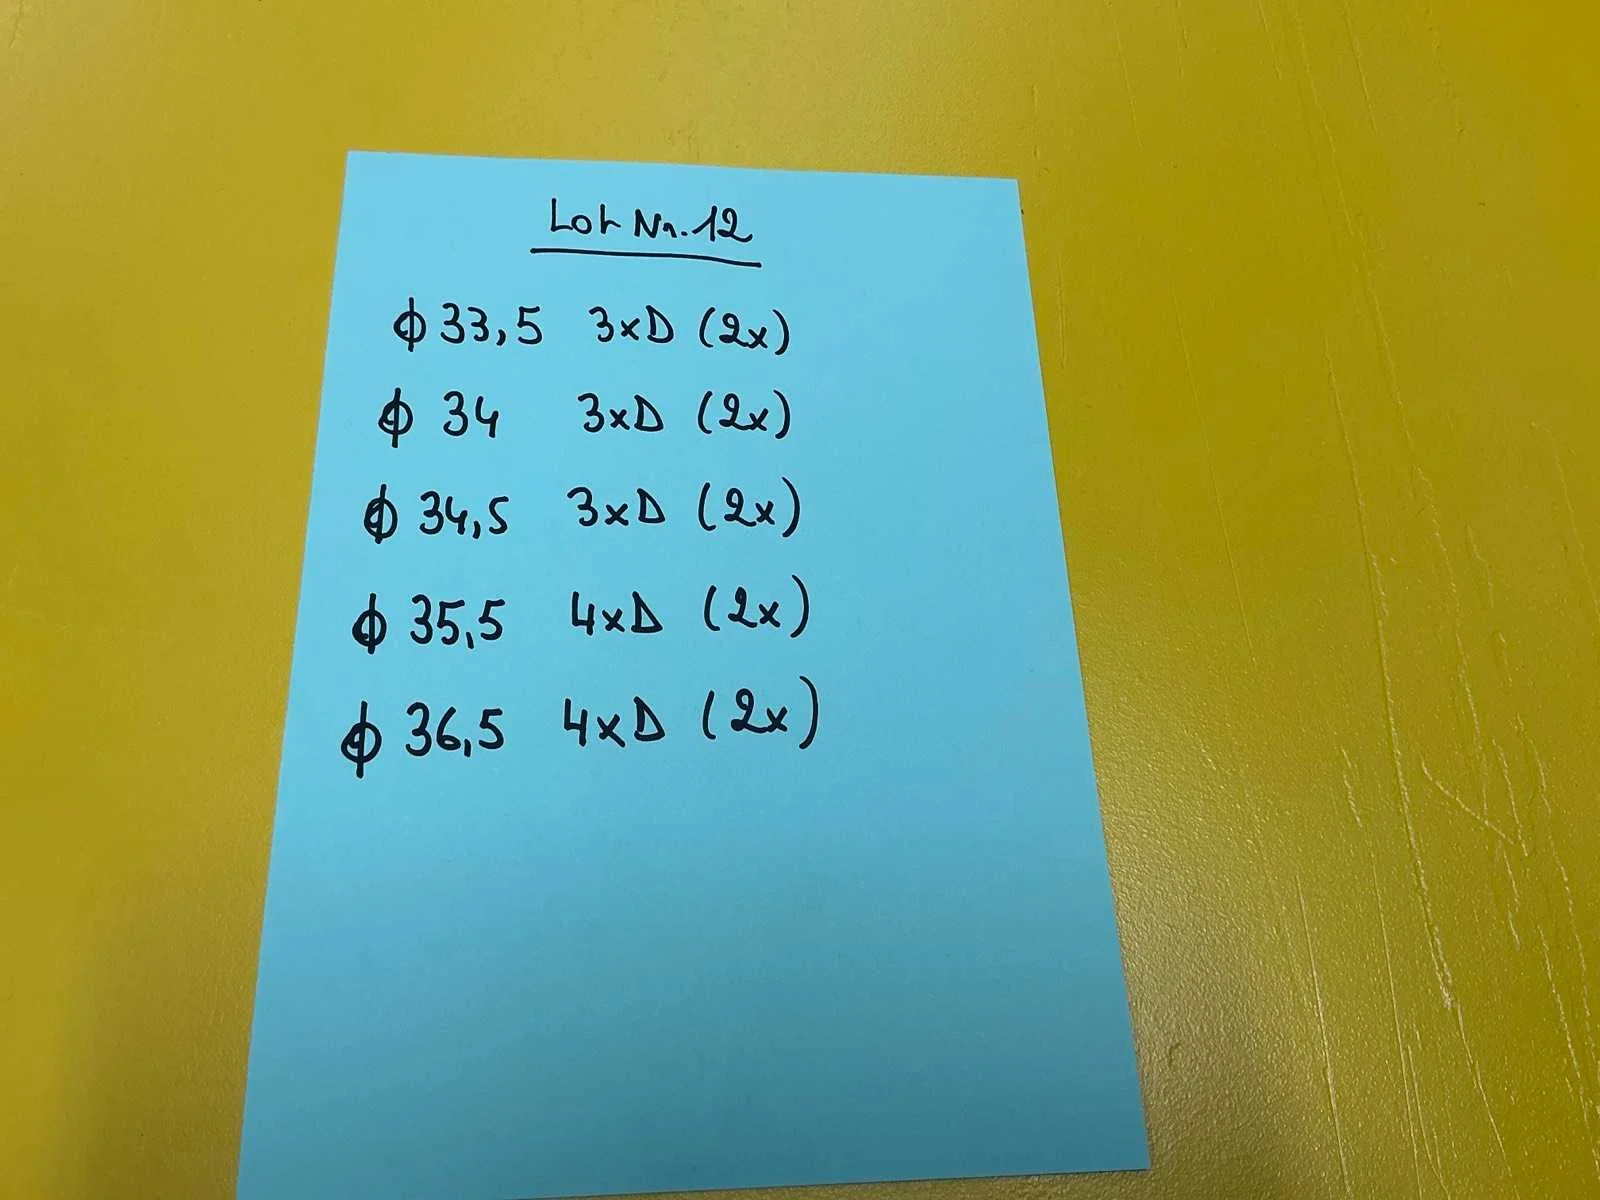 Lot Nr. 12
ϕ 33,5 3xD (2x)
ϕ 34 3xD (2x)
ϕ 34,5 3xD (2x)
ϕ 35,5 4xD (2x)
ϕ 36,5 4xD (2x)